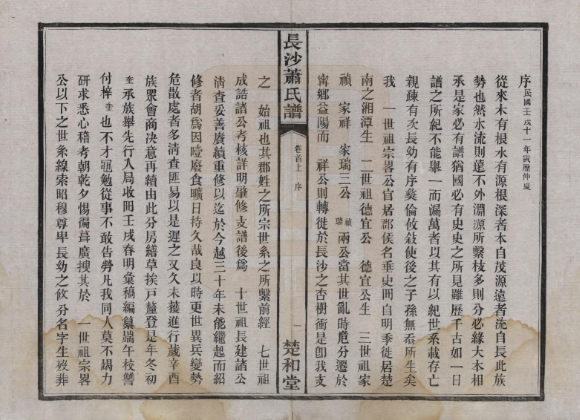 序 民國壬戌十一年寅歷仲夏
從來木有根水有源根深者木自茂源遠者流自長此族
勢也然水流則遠不外淵源所繫枝多則分必緣大木相
承是家必有譜猶國必有史史之所見雖歷千古如一日
譜之所紀不能舉一而漏萬者以其有以紀世系載存亡
親疎有次長幼有序奕倫攸敘使後之子孫無忝所生矣
我 一世祖宗畧公官居郡侯名垂史冊自明季徙居楚
南之湘潭生 二世祖德宜公 德宜公生 三世祖家
禎 家祥 家瑞三公 禎 瑞 兩公當其世亂時危分遷於
甯鄉益陽而 祥公則轉徙於長沙之杏樹衝是卽我支
長沙蕭氏譜
卷首上 序
一 楚和堂
之 始祖也其郡姓之所宗世系之所繫前經 七世祖
成誥諸公考核詳明肇修支譜後爲 十世祖長建諸公
清查妥善賡續重修以迄於今越三十年未能繼起而紹
修者胡爲因噎廢食曠日持久哉良以時更世異兵燹勢
危散處者多清查匪易以是遲之又久未獲進行歲辛酉
族眾會商決意再續由此分房繕草挨戶釐登是年冬初
圭承族舉先行入局收冊壬戌春明彙稿編纂端午校讐
付梓 圭也不才竭勉從事不敢告勞凡我同人莫不竭力
研求悉心稽考朝乾夕惕備爲廣搜其於 一世祖宗畧
公以下之世系線索昭穆尊卑長幼之攸分名字生歿葬